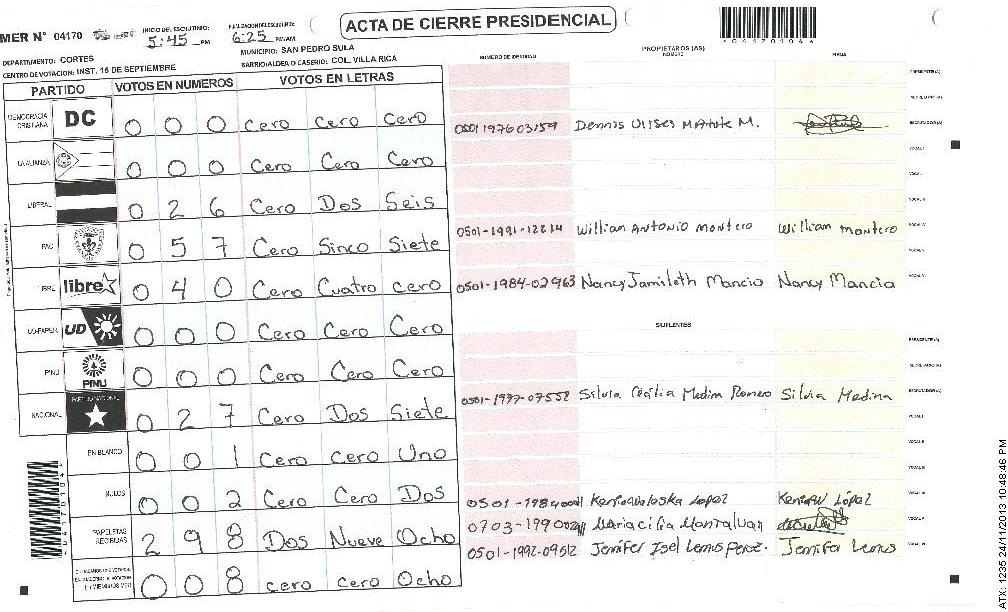 ACTA DE CIERRE PRESIDENCIAL
MER N° 04170
INICIO DEL ESCRUTINIO: 5:45 PM
6:25 PM/AM
*04170104*
DEPARTAMENTO: CORTES
MUNICIPIO: SAN PEDRO SULA
CENTRO DE VOTACION: INST. 15 DE SEPTIEMBRE
BARRIO/ALDEA O CASERIO: COL. VILLA RICA
PARTIDO VOTOS EN NUMEROS VOTOS EN LETRAS
DEMOCRACIA CRISTIANA DC 0 0 0 Cero Cero Cero
LA ALIANZA 0 0 0 Cero Cero Cero
LIBERAL 0 2 6 Cero Dos Seis
PAC 0 5 7 Cero Sinco Siete
LIBRE libre 0 4 0 Cero Cuatro cero
UD-FAPER UD 0 0 0 Cero Cero Cero
PINU PINU 0 0 0 Cero Cero Cero
NACIONAL PARTIDO NACIONAL 0 2 7 Cero Dos Siete
EN BLANCO 0 0 1 Cero cero Uno
NULOS 0 0 2 Cero Cero Dos
PAPELETAS RECIBIDAS 2 9 8 Dos Nueve Ocho
0 0 8 cero cero Ocho
*04170104*
NUMERO DE IDENTIDAD PROPIETARIOS (AS) NOMBRE FIRMA
PRESIDENTE(A)
SECRETARIO(A)
0501 1976 03159 Dennis Ulises Matute M. ESCRUTADOR(A)
VOCAL I
VOCAL II
VOCAL III
0501-1991-12214 William Antonio Montero William Montero VOCAL IV
VOCAL V
0501-1984-02963 Nancy Jamileth Mancia Nancy Mancia VOCAL VI
SUPLENTES
PRESIDENTE(A)
SECRETARIO(A)
0501-1977-07552 Silvia Cecilia Medina Romero Silvia Medina ESCRUTADOR(A)
VOCAL I
VOCAL II
VOCAL III
0501-1984 López López VOCAL IV
0703-1990 Maria Montalvan VOCAL V
0501-1992-09512 Jenifer Isel Lemus Perez. Jennifer Lemus VOCAL VI
ATX: 1235 24/11/2013 10:48:46 PM